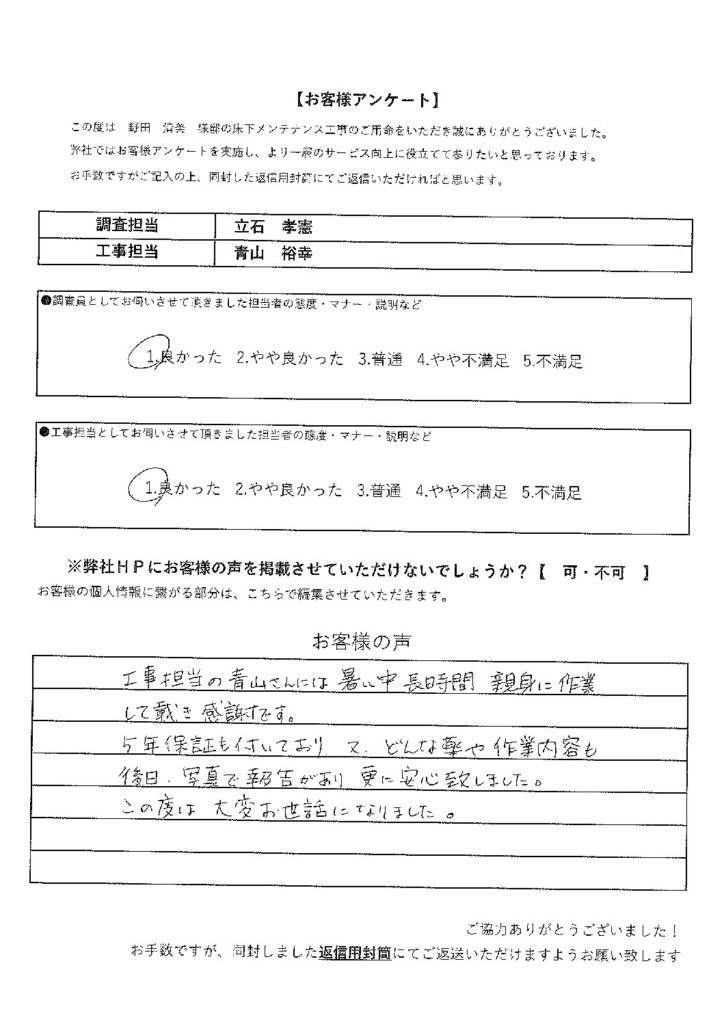 【お客様アンケート】
この度は　野田　清美　様邸の床下メンテナンス工事のご用命をいただき誠にありがとうございました。
弊社ではお客様アンケートを実施し、より一層のサービス向上に役立てて参りたいと思っております。
お手数ですがご記入の上、同封した返信用封筒にてご返信いただければと思います。
調査担当　立石　孝憲
工事担当　青山　裕幸
●調査員としてお伺いさせて頂きました担当者の態度・マナー・説明など
1.良かった　2.やや良かった　3.普通　4.やや不満足　5.不満足
●工事担当としてお伺いさせて頂きました担当者の態度・マナー・説明など
1.良かった　2.やや良かった　3.普通　4.やや不満足　5.不満足
※弊社ＨＰにお客様の声を掲載させていただけないでしょうか？【　可・不可　】
お客様の個人情報に繋がる部分は、こちらで編集させていただきます。
お客様の声
工事担当の青山さんには 暑い中 長時間 親身に作業
して戴き 感謝です。
5年保証も付いており 又、どんな薬や作業内容も
後日、写真で報告があり 更に安心致しました。
この度は 大変お世話になりました。
ご協力ありがとうございました！
お手数ですが、同封しました返信用封筒にてご返送いただけますようお願い致します